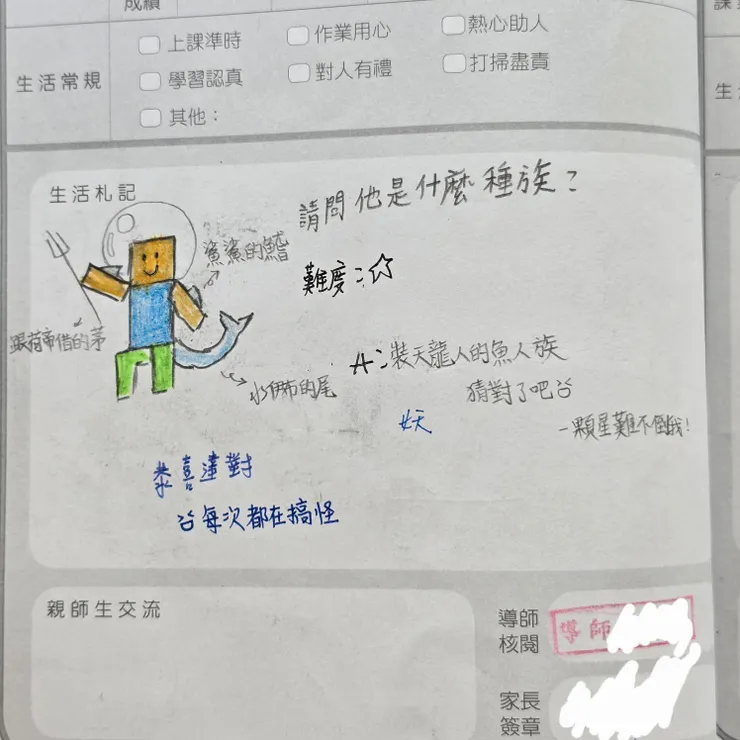 成績
生活常規
上課準時
作業用心
熱心助人
學習認真
對人有禮
打掃盡責
其他：
生活札記
請問他是什麼種族？
難度：☆
鯊鯊的鰭
跟荷蒂借的茅
的尾
A：裝天龍人的魚人族
猜對了吧
一顆星難不倒我！
妖
恭喜達對
每次都在搞怪
親師生交流
導師
核閱
導師
家長
簽章
生